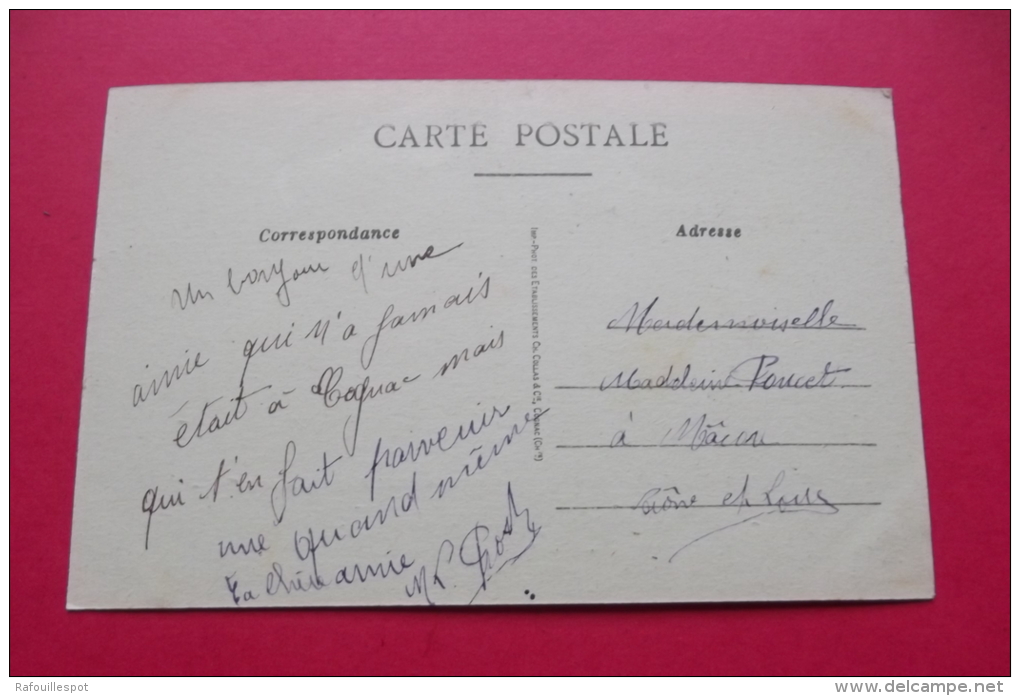 CARTE POSTALE
Correspondance
Un bonjour d'une
amie qui n'a jamais
était à Cognac mais
qui t'en fait parvenir
une quand même
Ta chère amie
M L.
Imp-Phot des Etablissements Ch. Collas & Cie, Cognac (Chte)
Adresse
Mademoiselle
Madeleine Poncet
à Mâcon
Saône et Loire
Rafouillespot
www.delcampe.net